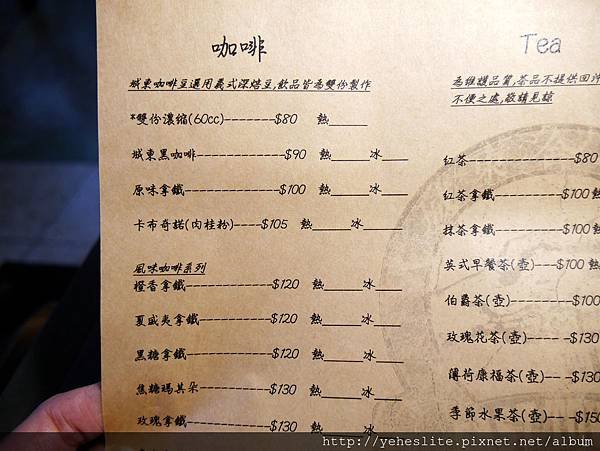 咖啡
城東咖啡豆選用義式深焙豆,飲品皆為雙份製作
*雙份濃縮(60cc)--------$80 熱____
城東黑咖啡--------------$90 熱____冰____
原味拿鐵---------------$100 熱____冰____
卡布奇諾(肉桂粉)----$105 熱____冰____
風味咖啡系列
橙香拿鐵--------------$120 熱____冰____
夏威夷拿鐵------------$120 熱____冰____
黑糖拿鐵--------------$120 熱____冰____
焦糖瑪其朵------------$130 熱____冰____
玫瑰拿鐵--------------$130 熱____冰____
Tea
為維護品質,茶品不提供回沖
不便之處,敬請見諒
紅茶-----------------$80
紅茶拿鐵-------------$100 熱
抹茶拿鐵-------------$100 熱
英式早餐茶(壺)---$100 熱
伯爵茶(壺)----------$100
玫瑰花茶(壺)---- -$130
薄荷康福茶(壺)-- -$130
季節水果茶(壺)-- -$150
http://yeheslite.pixnet.net/album